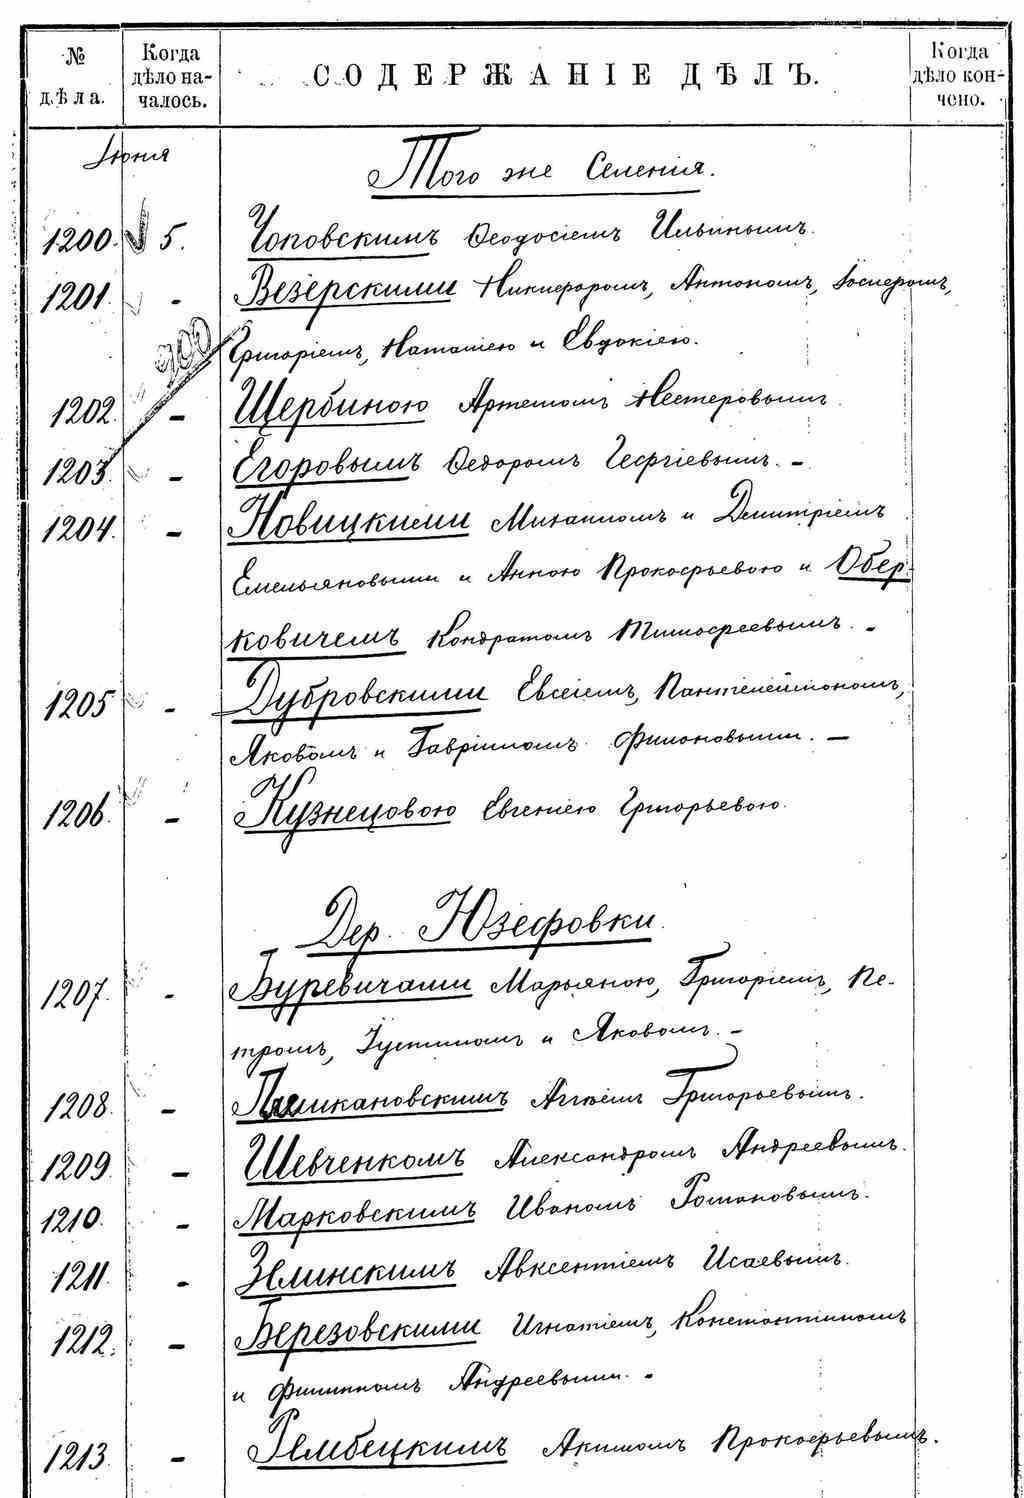 № дѣла.
Когда дѣло началось.
СОДЕРЖАНІЕ ДѢЛЪ.
Когда дѣло кончено.
Июня
Того же Селенія.
1200. 5. Чоповскимъ Ѳеодосіемъ Ильинымъ.
1201. - Везерскими Никифоромъ, Антономъ, Іосифомъ,
900 Григоріемъ, Наталіею и Евдокіею.
1202. - Щербиною Артемомъ Нестеровымъ.
1203. - Егоровымъ Ѳедоромъ Георгіевымъ. -
1204. - Новицкими Михаиломъ и Димитріемъ
Емельяновыми и Анною Прокофьевою и Обер-
ковичемъ Кондратомъ Тимофеевымъ. -
1205 - Дубровскими Евсеіемъ, Пантелеймономъ,
Яковомъ и Гавріиломъ Филоновыми. -
1206. - Кузнецовою Евгеніею Григорьевою.
Дер. Юзефовки.
1207. - Буревичами Марьяною, Григоріемъ, Пе-
тромъ, Іустиномъ и Яковомъ. -
1208. - Аггѣемъ Григорьевымъ.
1209. - Шевченкомъ Александромъ Андреевымъ.
1210. - Марковскимъ Иваномъ Романовымъ.
1211. - Зелинскимъ Авксентіемъ Исаевымъ.
1212. - Березовскими Игнатіемъ, Константиномъ
и Филиппомъ Андреевыми. -
1213. - Рембецкимъ Акимомъ Прокофьевымъ.